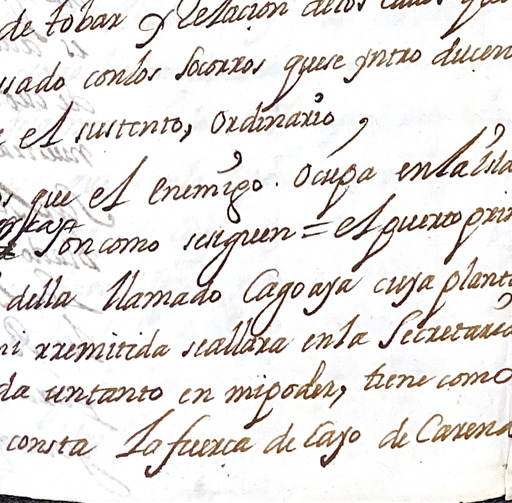 de tobar y Relacion delos casos que
ssado conlos socorros quese yntro ducen
el sustento, ordinario,
s que el Enemigo. Ocupa enla isla
son como sesiguen = el puerto prin
della llamado Cagoaya cuya planta
mi rremitida seallara enla Secretaria
da untanto en mipoder, tiene como
consta La fuerca de Cayo de Carena